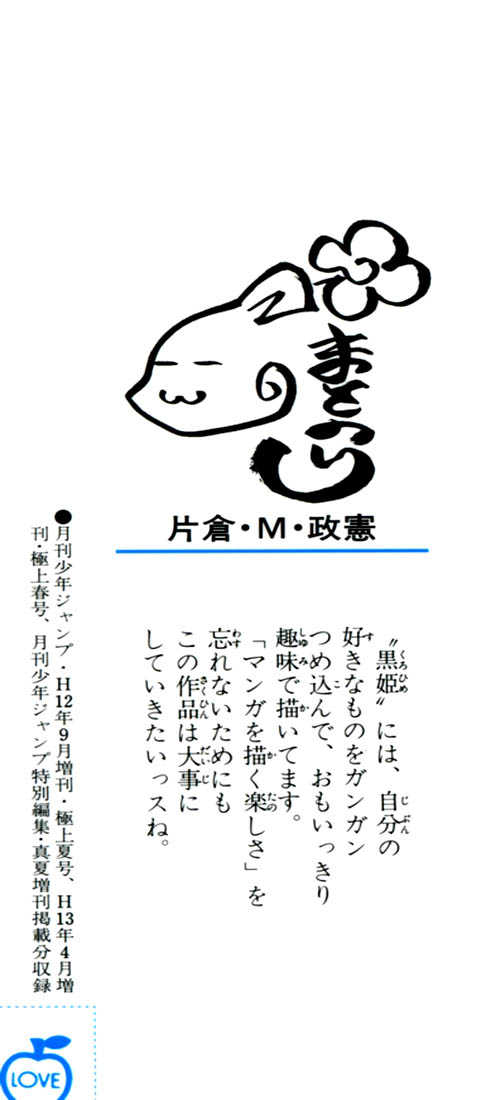 まさのり
片倉・M・政憲
〝黒姫〟には、自分の
好きなものをガンガン
つめ込んで、おもいっきり
趣味で描いてます。
「マンガを描く楽しさ」を
忘れないためにも
この作品は大事に
していきたいっスね。
●月刊少年ジャンプ・H12年9月増刊・極上夏号、H13年4月増
刊・極上春号、月刊少年ジャンプ特別編集・真夏増刊掲載分収録
LOVE